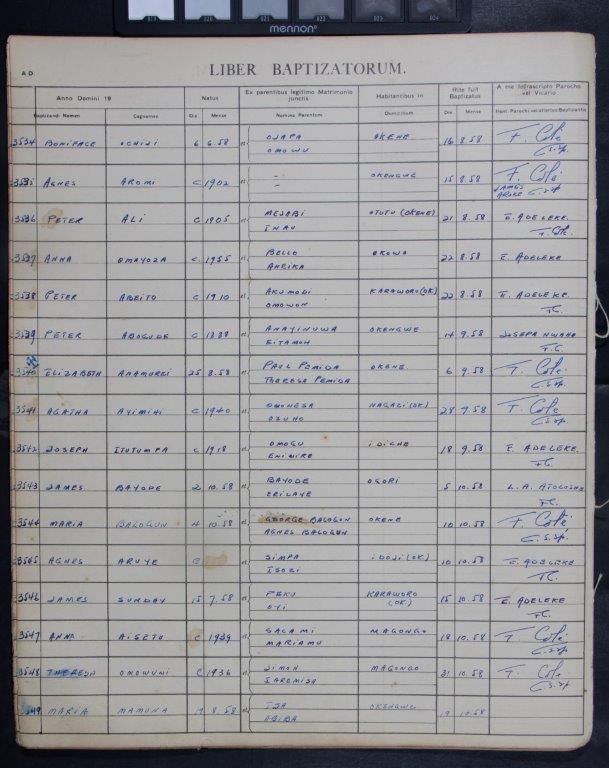 mennon
LIBER BAPTIZATORUM.
A.D.
Anno Domini 19 Natus Ex parentibus legitimo Matrimonio junctis Habitantibus in Rite fuit Baptizatus A me infrascripto Parocho vel Vicario
Baptizandi Nomen Cognomen Die Mense Nomina Parentum Domicilium Die Mense Nom. Parochi vel alterius Baptizantis
3534 BONIFACE OCHIJI 6 6.58 et OJAPA OKENE 16 8.58 F. Colé
OMOWU C.S.Sp.
3535 AGNES AROMI C 1902 et - OKENGWE 15 8.58 F. Colé
- JAMES AROKE C.S.Sp
3536 PETER ALI C 1905 et MEJABI OTUTU (OKENE) 21 8.58 E. ADELEKE.
INAU F. Cole.
3537 ANNA OMAYOZA C. 1955 et BELLO OKOWA 22 8.58 E. ADELEKE
ANEIKA
3538 PETER ABEITO C 1910 et AKUMODI KARAWORO (OK) 22 8.58 E. ADELEKE
OMOWON F.C.
3539 PETER ABOGUDE C 1888 et ANAYINUWA OKENGWE 14 9.58 JOSEPH NWAHO
EITAMOH F.C.
3540 ELIZABETH ANAMUREI 25 8.58 et PAUL PEMIDA OKENE 6 9.58 F. Colé
THERESA PEMIDA C.S.Sp.
3541 AGATHA AYIMIHI C 1940 et OMONESA NAGALI (OK) 28 9.58 F. Colé
OZUHO C.S.Sp
3542 JOSEPH ITUTUMPA C 1918 et OMOGU IDICHE 18 9.58 E. ADELEKE.
ENIMIRE F.C.
3543 JAMES BAYODE 2 10.58 et BAYODE OGORI 5 10.58 L.A.
ERILAYE F.C.
3544 MARIA BALOGUN 4 10.58 et GEORGE BALOGON OKENE 10 10.58 F. Colé
AGNES BALOGUN C.S.Sp.
3545 AGNES ARUYE C et SIMPA IDOJI (OK) 10 10.58 E. ADELEKE
ISOZI F.C.
3546 JAMES SUNDAY 15 7.58 et PEKU KARAWORO (OK) 15 10.58 E. ADELEKE
OYI F.C.
3547 ANNA AISETU C 1939 et SALAMI MAGONGO 18 10.58 F. Colé
MARIAMU C.S.Sp
3548 THERESA OMOWUMI C 1936 et SIMON MAGONGO 31 10.58 F. Colé
IAROMISA C.S.Sp
3549 MARIA MAMUNA 19 8.58 et ISA OKENGWE 19 10.58
ABIBA